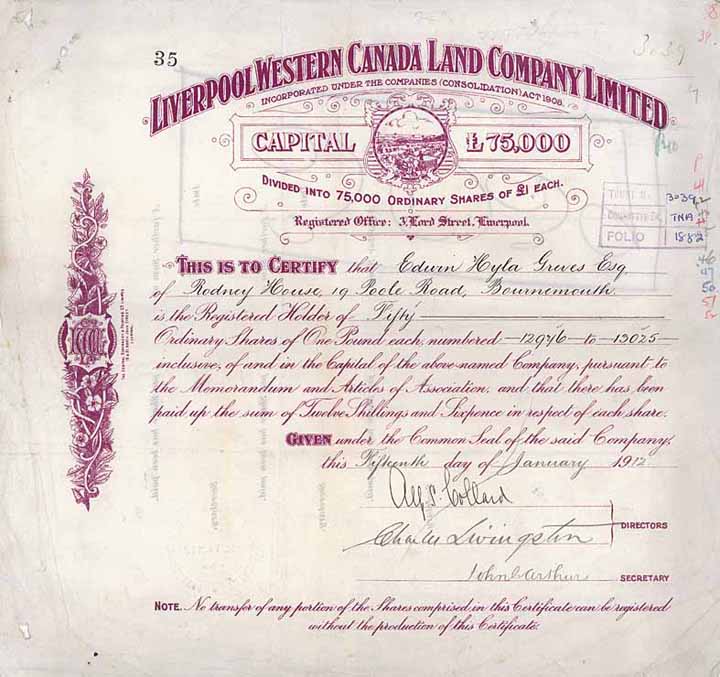 35
3039
LIVERPOOL WESTERN CANADA LAND COMPANY LIMITED
INCORPORATED UNDER THE COMPANIES (CONSOLIDATION) ACT 1908.
CAPITAL £75,000
DIVIDED INTO 75,000 ORDINARY SHARES OF £1 EACH.
Registered Office: 3, Lord Street, Liverpool.
3039
TNA
FOLIO 1882
THIS IS TO CERTIFY that Edwin Hyla Greves Esq
of Rodney House, 19 Poole Road, Bournemouth
is the Registered Holder of Fifty
Ordinary Shares of One Pound each, numbered —12976—to—13025—
inclusive, of and in the Capital of the above-named Company, pursuant to
the Memorandum and Articles of Association, and that there has been
paid up the sum of Twelve Shillings and Sixpence in respect of each share.
GIVEN under the Common Seal of the said Company,
this Fifteenth day of January 1912
Alf. S. Collard
DIRECTORS
Charles Livingston
SECRETARY
NOTE. No transfer of any portion of the Shares comprised in this Certificate can be registered
without the production of this Certificate.